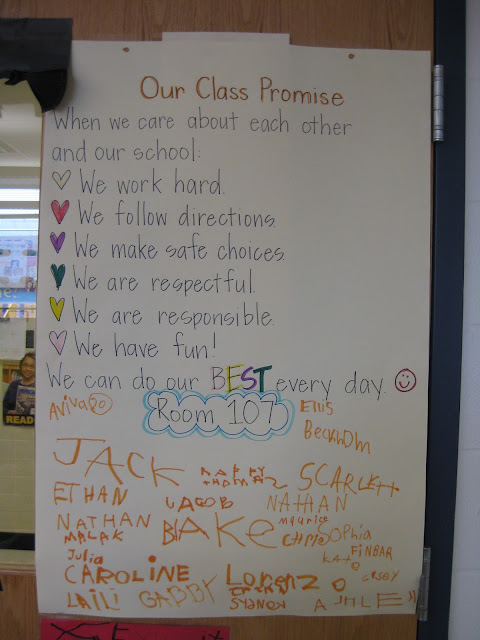 Our Class Promise
When we care about each other
and our school:
We work hard.
We follow directions.
We make safe choices.
We are respectful.
We are responsible.
We have fun!
We can do our BEST every day.
Aviva
Room 107
Ellis
JACK
SCARLETT
ETHAN
JACOB
NATHAN
NATHAN
Maurice
MALAK
BLAKE
SOPhia
FiNBAR
Julia
Kate
CAROLINE
Lorenzo
CASEY
LAILI
GABBY
SYDNEY
ASHLEY
READ